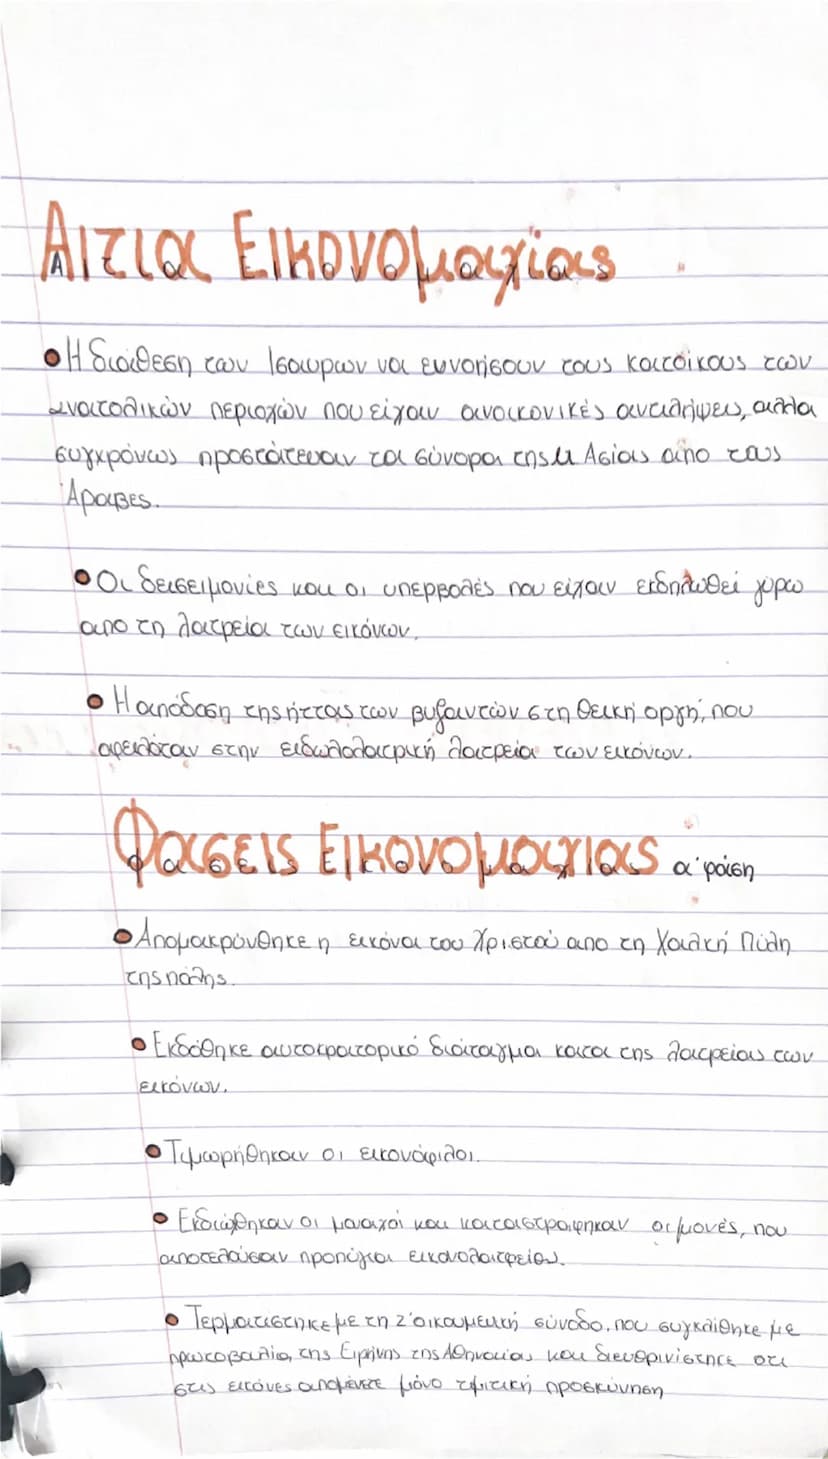 Αιτια Εικονομαχιας
• Η διάθεση των Ισαυρων να ευνοήσουν τους κατοίκους των
ανατολικών περιοχών που είχαν ανεικονικές αντιλήψεις, αλλα
συγχρόνως προστάτευαν τα σύνορα της Μ Ασίας απο τους
Άραβες.
• Οι δεισειμονίες και οι υπερβολές που είχαν εκδηλωθεί γύρω
απο τη λατρεία των εικόνων.
• Η απόδοση της ήττας των βυζαντών στη θεική οργή, που
οφειλόταν στην ειδωλολατρική λατρεία των εικόνων.
Φασεις Εικονομαχιας α' φάση
• Απομακρύνθηκε η εικόνα του Χριστού απο τη Χαλκή Πύλη
της πόλης.
• Εκδόθηκε αυτοκρατορικό διάταγμα κατα της λατρείας των
εικόνων.
• Τιμωρήθηκαν οι εικονόφιλοι.
• Εκδιώχθηκαν οι μοναχοί και καταστράφηκαν οι μονές, που
αποτελούσαν προπύγια εικονολατρείου.
• Τερματιστηκε με τη Ζ' οικουμενική σύνοδο, που συγκλίθηκε με
πρωτοβουλία της Ειρήνης της Αθηναίας και διευθρινίστηκε οτι
στις εικόνες απομένετε μόνο τμιτική προσκύνηση